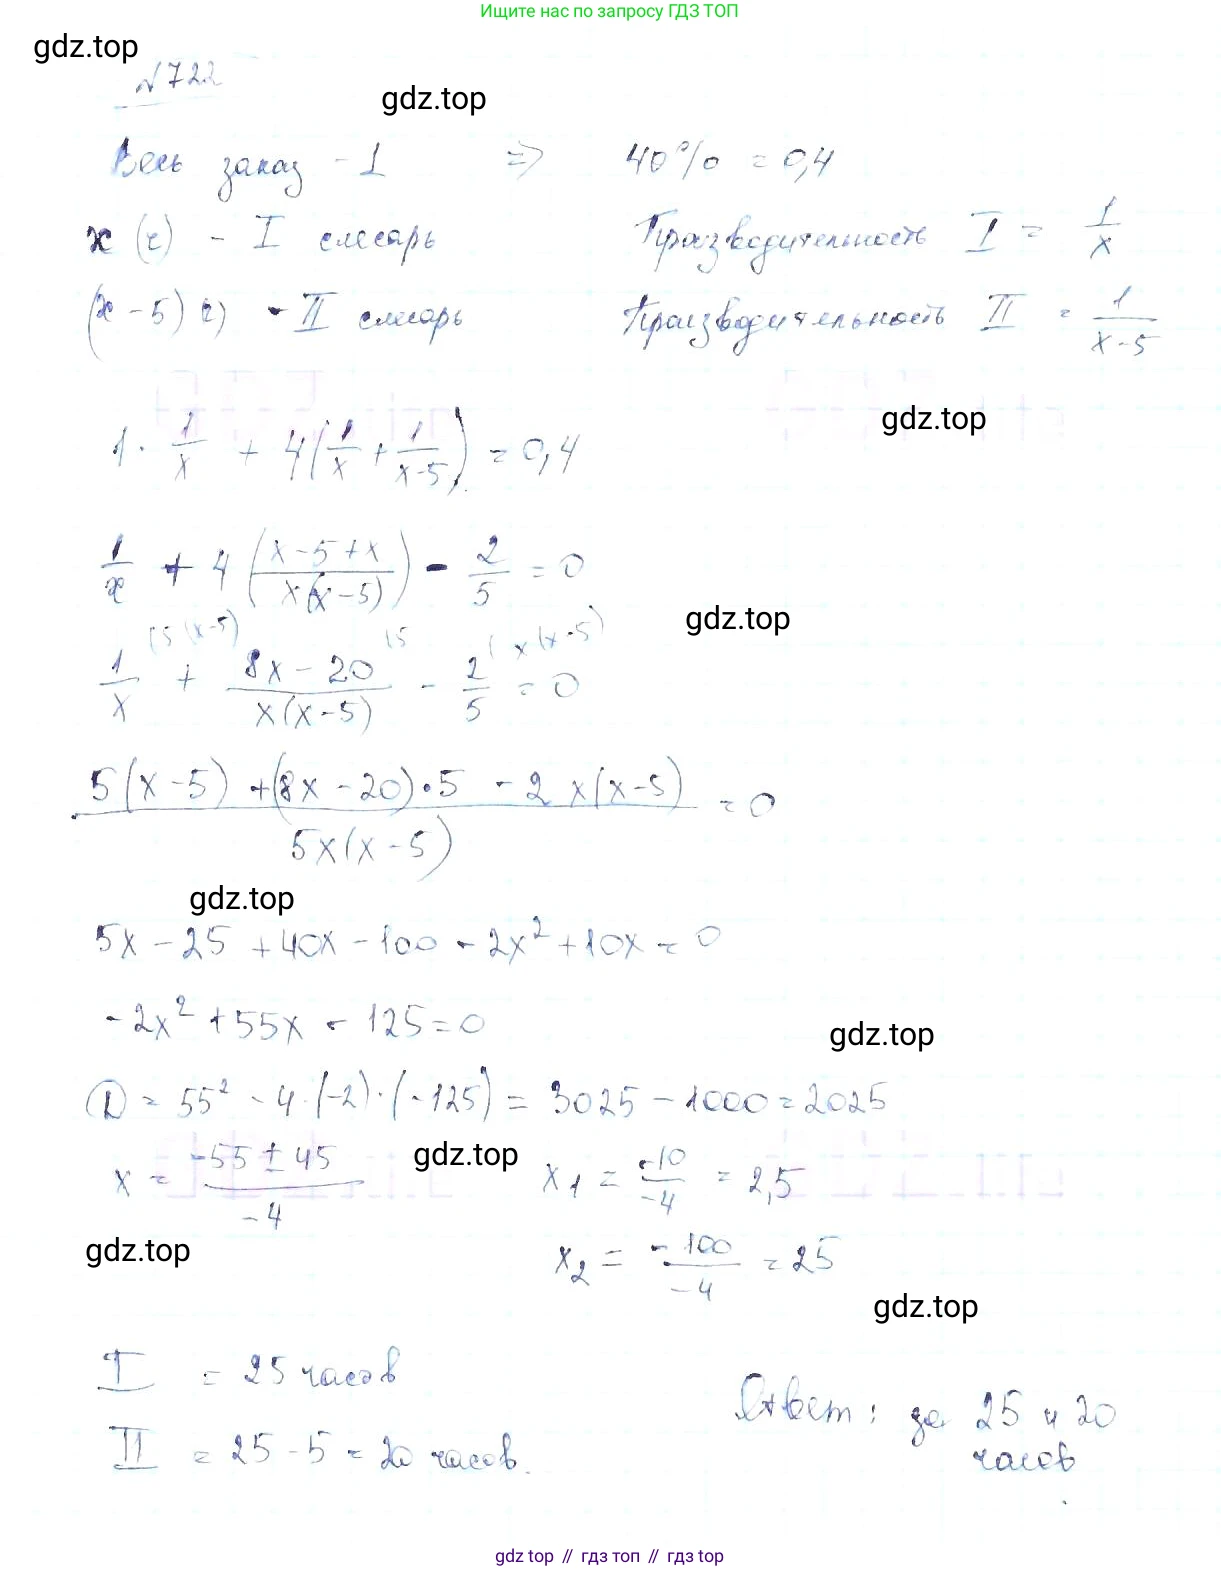 Ищите нас по запросу ГДЗ ТОП
gdz.top
№722
gdz.top
Весь заказ - 1 => 40% = 0,4
x (ч) - I слесарь Производительность I = 1/x
(x - 5) ч) - II слесарь Производительность II = 1/(x-5)
gdz.top
1 · 1/x + 4(1/x + 1/(x-5)) = 0,4
1/x + 4((x-5+x)/(x(x-5))) - 2/5 = 0
gdz.top
(5(x-5) (5 (x(x-5)
1/x + (8x-20)/(x(x-5)) - 2/5 = 0
(5(x-5) + (8x-20)·5 - 2x(x-5))/(5x(x-5)) = 0
gdz.top
5x - 25 + 40x - 100 - 2x² + 10x = 0
-2x² + 55x - 125 = 0
gdz.top
D = 55² - 4·(-2)·(-125) = 3025 - 1000 = 2025
x = (-55 ± 45)/-4 gdz.top x₁ = -10/-4 = 2,5
gdz.top x₂ = -100/-4 = 25
gdz.top
I = 25 часов
Ответ: за 25 и 20
II = 25 - 5 = 20 часов.
часов
gdz top // гдз топ // gdz top